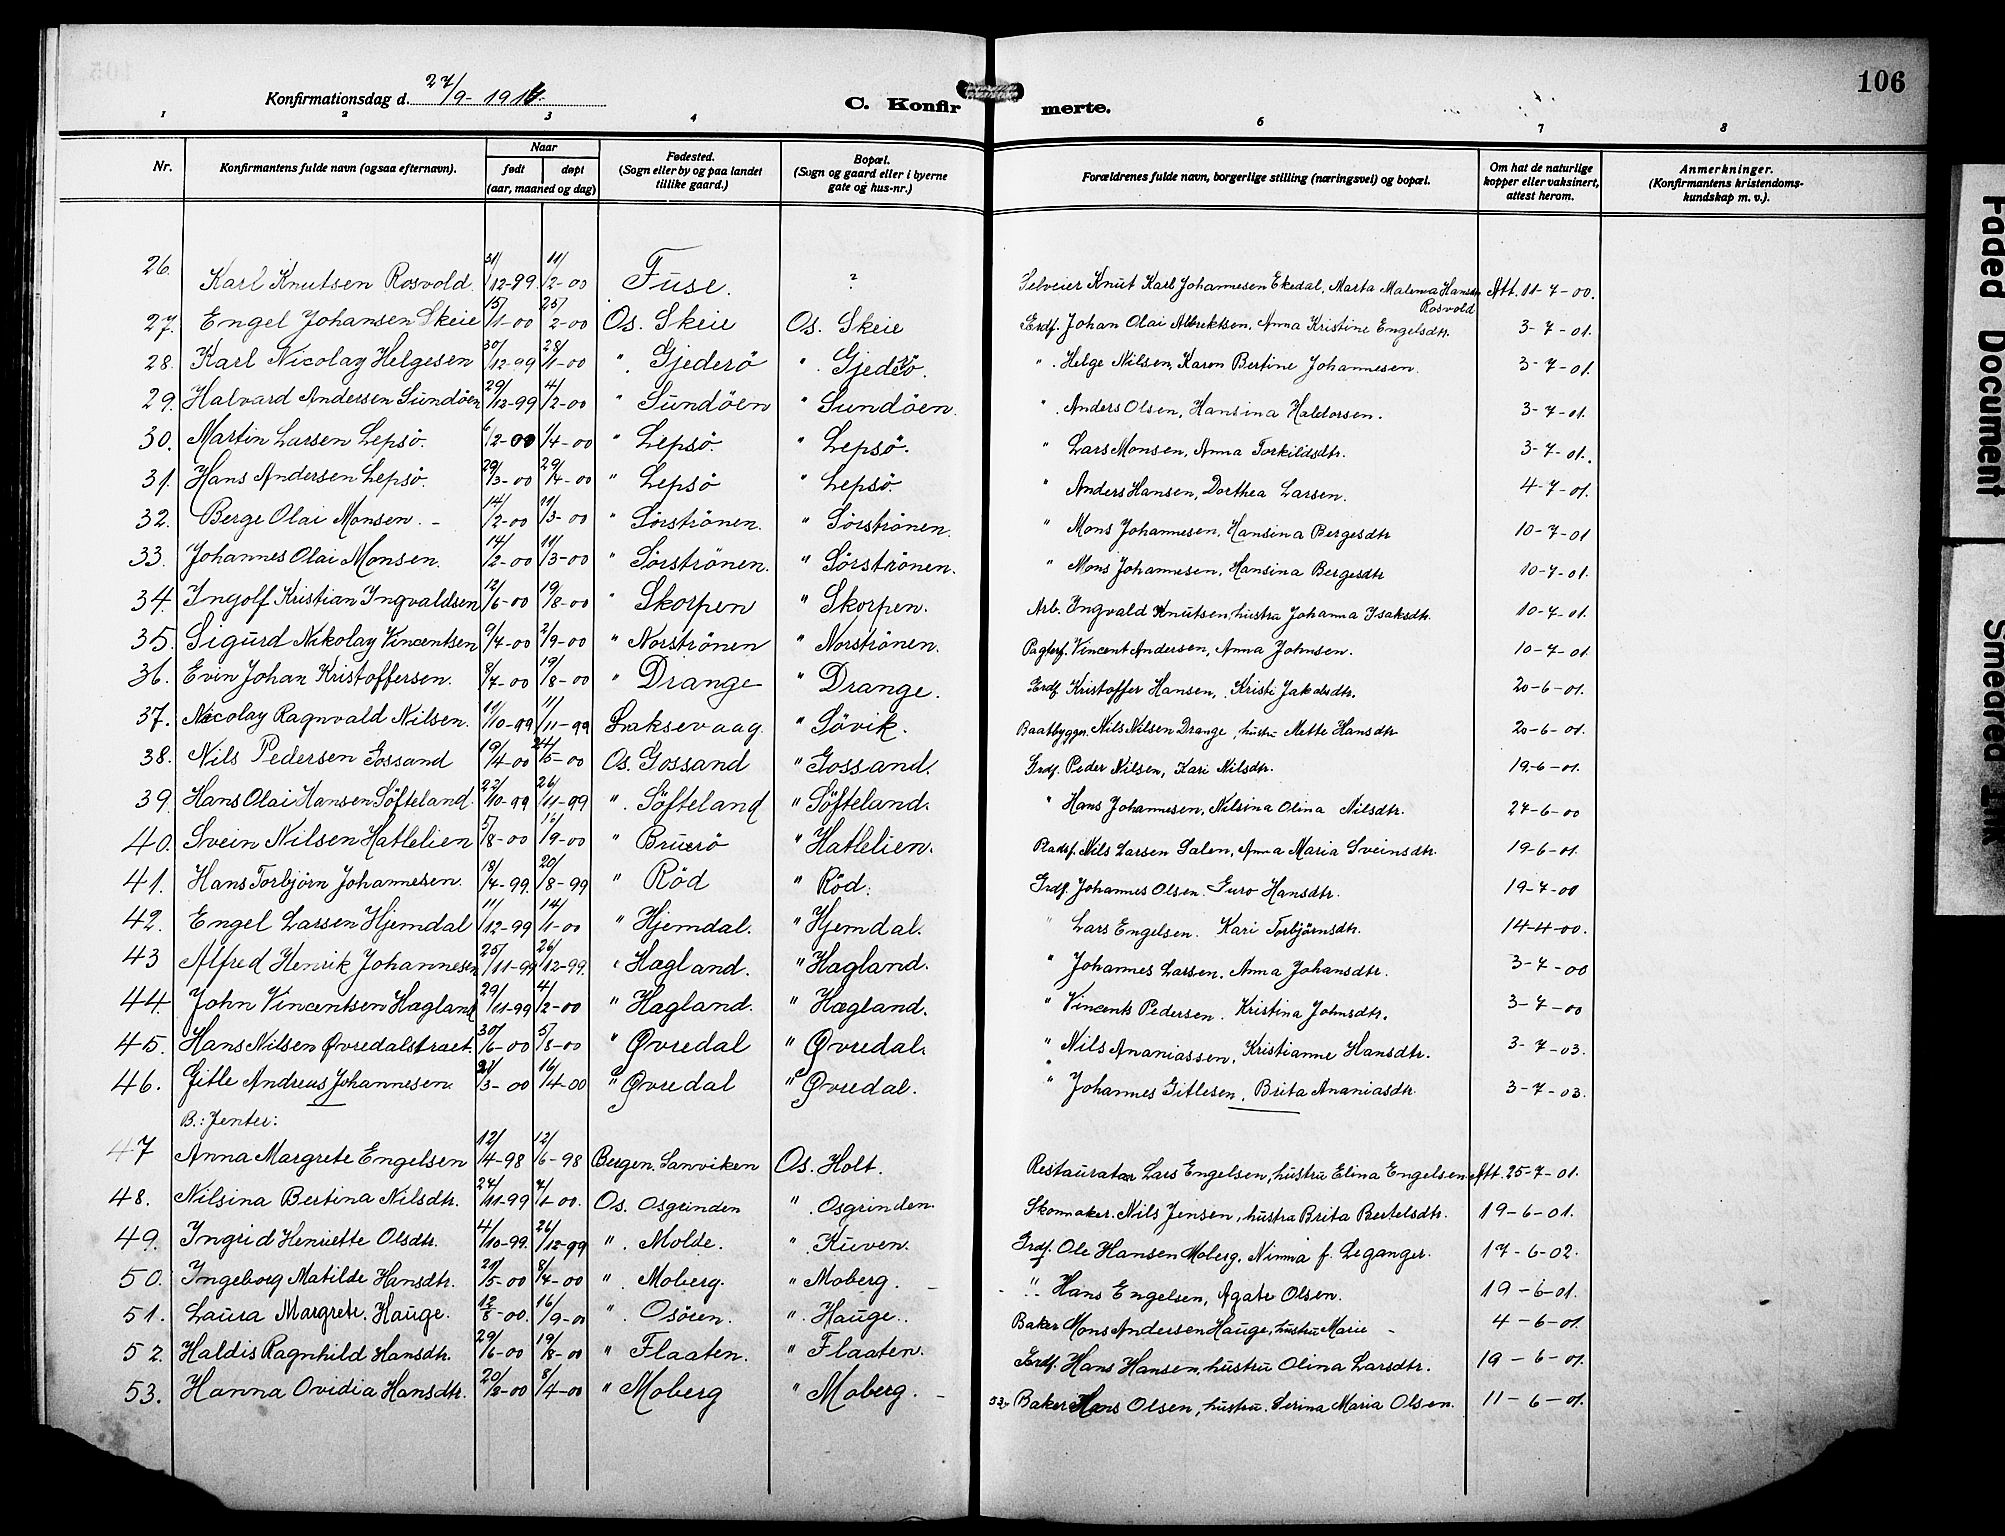 Konfirmationsdag d. 27/9-1914. C. Konfirmerte. 106
1 2 3 4 5 6 7 8
Nr. Konfirmantens fulde navn (ogsaa efternavn). Naar født døpt (aar, maaned og dag) Fødested. (Sogn eller by og paa landet tillike gaard.) Bopæl. (Sogn og gaard eller i byerne gate og hus-nr.) Forældrenes fulde navn, borgerlige stilling (næringsvei) og bopæl. Om hat de naturlige kopper eller vaksinert, attest herom. Anmerkninger. (Konfirmantens kristendoms-kundskap m. v.).
26. Karl Knutsen Rosvold. 31/12-99 11/2-00 Fuse. ? Selveier Knut Karl Johannesen Ekedal, Marta Malena Hansdtr Rosvold Att. 11-7-00.
27. Engel Johansen Skeie 15/1-00 25/2-00 Os. Skeie Os. Skeie Grdf. Johan Olai Albrektsen, Anna Kristine Engelsdtr. 3-7-01.
28. Karl Nicolay Helgesen 30/12-99 28/1-00 " Gjederö " Gjederö. " Helge Nilsen, Karen Bertine Johannesen. 3-7-01.
29. Halvard Andersen Sundöen 29/12-99 4/2-00 " Sundöen " Sundöen. " Anders Olsen, Hansina Haldorsen. 3-7-01.
30. Martin Larsen Lepsö. 6/2-00 1/4-00 " Lepsö. " Lepsö. " Lars Monsen, Anna Torkildsdtr. 3-7-01.
31. Hans Andersen Lepsö. 29/3-00 29/4-00 " Lepsö " Lepsö. " Anders Hansen, Dorthea Larsen. 4-7-01.
32. Berge Olai Monsen. - 14/2-00 11/3-00 " Sörströnen. " Sörströnen. " Mons Johannesen, Hansina Bergesdtr 10-7-01
33. Johannes Olai Monsen. 14/2-00 11/3-00 " Sörströnen. " Sörströnen. " Mons Johannesen, Hansina Bergesdtr 10-7-01.
34. Ingolf Kristian Ingvaldsen 12/6-00 19/8-00 " Skorpen " Skorpen. Arb. Ingvald Knutsen, hustru Johanna Isaksdtr. 10-7-01.
35. Sigurd Nikolay Vincentsen 9/4-00 2/9-00 " Norströnen " Norströnen. Pagterf. Vincent Andersen, Anna Johnsen. 10-7-01.
36. Evin Johan Kristoffersen. 8/7-00 19/8-00 " Drange " Drange. Grdf. Kristoffer Hansen, Kristi Jakobsdtr. 20-6-01.
37. Nicolay Ragnvald Nilsen. 11/10-99 11/11-99 Laksevaag " Sövik. Baatbygger. Nils Nilsen Drange, hustru Mette Hansdtr 20-6-01.
38. Nils Pedersen Gossand 19/4-00 24/5-00 Os. Gossand " Gossand. Grdf. Peder Nilsen, Kari Nilsdtr. 19-6-01.
39. Hans Olai Hansen Söfteland. 23/10-99 26/11-99 " Söfteland " Söfteland. " Hans Johannesen, Nilsina Olina Nilsdtr. 24-6-00
40. Svein Nilsen Hatlelien 5/8-00 16/9-00 " Bruerö " Hatlelien. Pladsf. Nils Larsen Salen, Anna Maria Sveinsdtr. 19-6-01.
41. Hans Torbjörn Johannesen. 18/7-99. 20/8-99 " Röd " Röd. Grdf. Johannes Olsen. Guro Hansdtr. 19-7-00
42. Engel Larsen Hjemdal 11/12-99 14/1-00 " Hjemdal. " Hjemdal. " Lars Engelsen. Kari Torbjörnsdtr. 14-4-00.
43 Alfred Henrik Johannesen 25/11-99 26/12-99. " Hagland. " Hagland. " Johannes Larsen. Anna Johansdtr. 3-7-00
44. John Vincentsen Hagland 29/11-99 4/2-00 " Hagland. " Hagland. " Vincents Pedersen. Kristina Johnsdtr. 3-7-00
45. Hans Nilsen Øvredalstræet. 30/6-00 5/8-00 " Øvredal " Øvredal. " Nils Ananiassen, Kristianne Hansdtr. 3-7-03.
46. Gitle Andreas Johannesen. 21/3-00 16/4-00 " Øvredal " Øvredal. " Johannes Gitlesen, Brita Ananiasdtr. 3-7-03.
B.: Jenter:
47 Anna Margrete Engelsen 12/4-98 12/6-98 Bergen. Sanviken Os. Holt. Restauratør Lars Engelsen, hustru Elina Engelsen Att. 25-7-01.
48. Nilsina Bertina Nilsdtr. 27/11-99 7/1-00. Os. Osgrinden " Osgrinden. Skomaker. Nils Jensen, hustru Brita Bertelsdtr. 19-6-01.
49. Ingrid Henriette Olsdtr. 4/10-99. 26/12-99 " Molde. " Kuven. Grdf. Ole Hansen Moberg. Ninna f. Leganger. 17-6-02.
50. Ingeborg Matilde Hansdtr. 21/5-00 8/7-00 " Moberg. " Moberg. - " Hans Engelsen, Agate Olsen. 19-6-01.
51. Laura Margrete. Hauge. 12/8-00. 16/9-00 " Osören. " Hauge. Baker Mons Andersen Hauge, hustru Marie - 4-6-01.
52. Haldis Ragnhild Hansdtr. 29/6-00 19/8-00 " Flaaten. " Flaaten. Grdf. Hans Hansen, hustru Olina Larsdtr. 19-6-01.
53. Hanna Ovidia Hansdtr. 20/2-00 8/4-00 " Moberg " Moberg. - 53. Baker Hans Olsen, hustru. Serina Maria Olsen. 11-6-01.
Faded Document
Smeared Ink